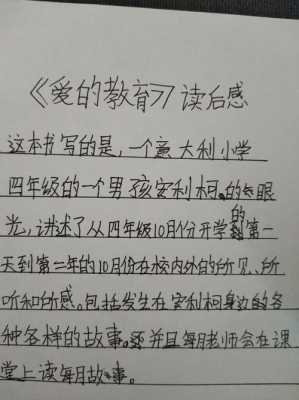 《爱的教育》读后感
这本书写的是，一个意大利小学
四年级的一个男孩安利柯的眼
光，讲述了从四年级10月份开学的第一
天到第二年的10月份在校内外的所见、所
听和所感。包括发生在安利柯身边的各
种各样的故事。并且每月老师会在课
堂上读每月故事。